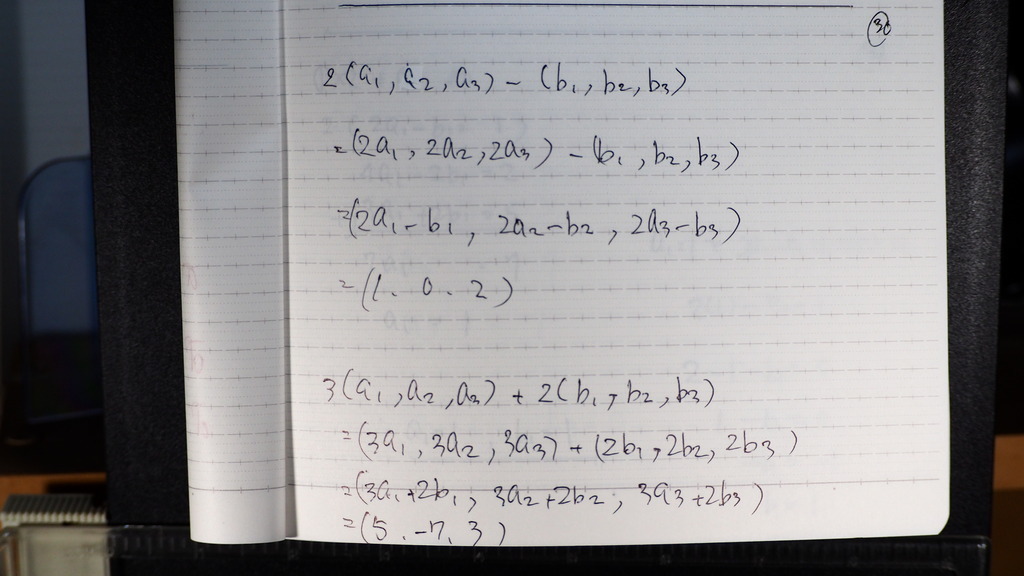 30
2(a₁, a₂, a₃) - (b₁, b₂, b₃)
=(2a₁, 2a₂, 2a₃) - (b₁, b₂, b₃)
=(2a₁-b₁, 2a₂-b₂, 2a₃-b₃)
=(1. 0. 2)
3(a₁, a₂, a₃) + 2(b₁, b₂, b₃)
=(3a₁, 3a₂, 3a₃) + (2b₁, 2b₂, 2b₃)
=(3a₁+2b₁, 3a₂+2b₂, 3a₃+2b₃)
=(5. -7. 3)